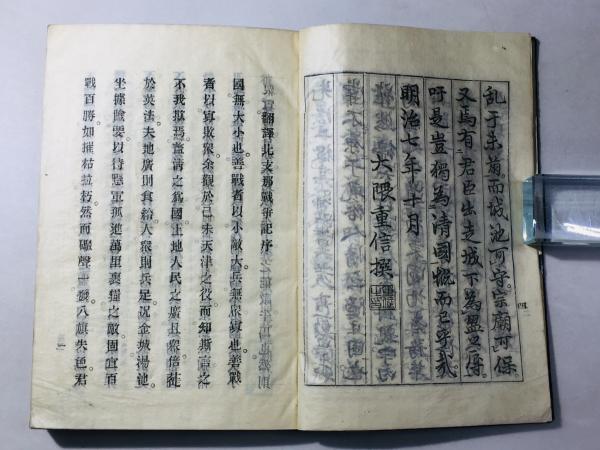 乱于未萠而城池可守宗廟可保
又焉有君臣出走城下為盟之辱
吁是豈獨為清國慨而已乎哉
明治七年十月
大隈重信撰
四
翻譯北支那戰爭記序
國無大小也。善戰者以小敵大。兵無衆寡也。善戰
者以寡敗衆。余觀於己未天津之役。而知斯言之
不我欺焉。蓋清之為國。土地人民之廣且衆。倍蓰
於英法夫地廣則食給。人衆則兵足。況金城湯池。
坐據險要以待懸軍孤進萬里裹糧之敵。固宜百
戰百勝。如摧枯拉朽。然而礮聲一發。八旗失色。君
一